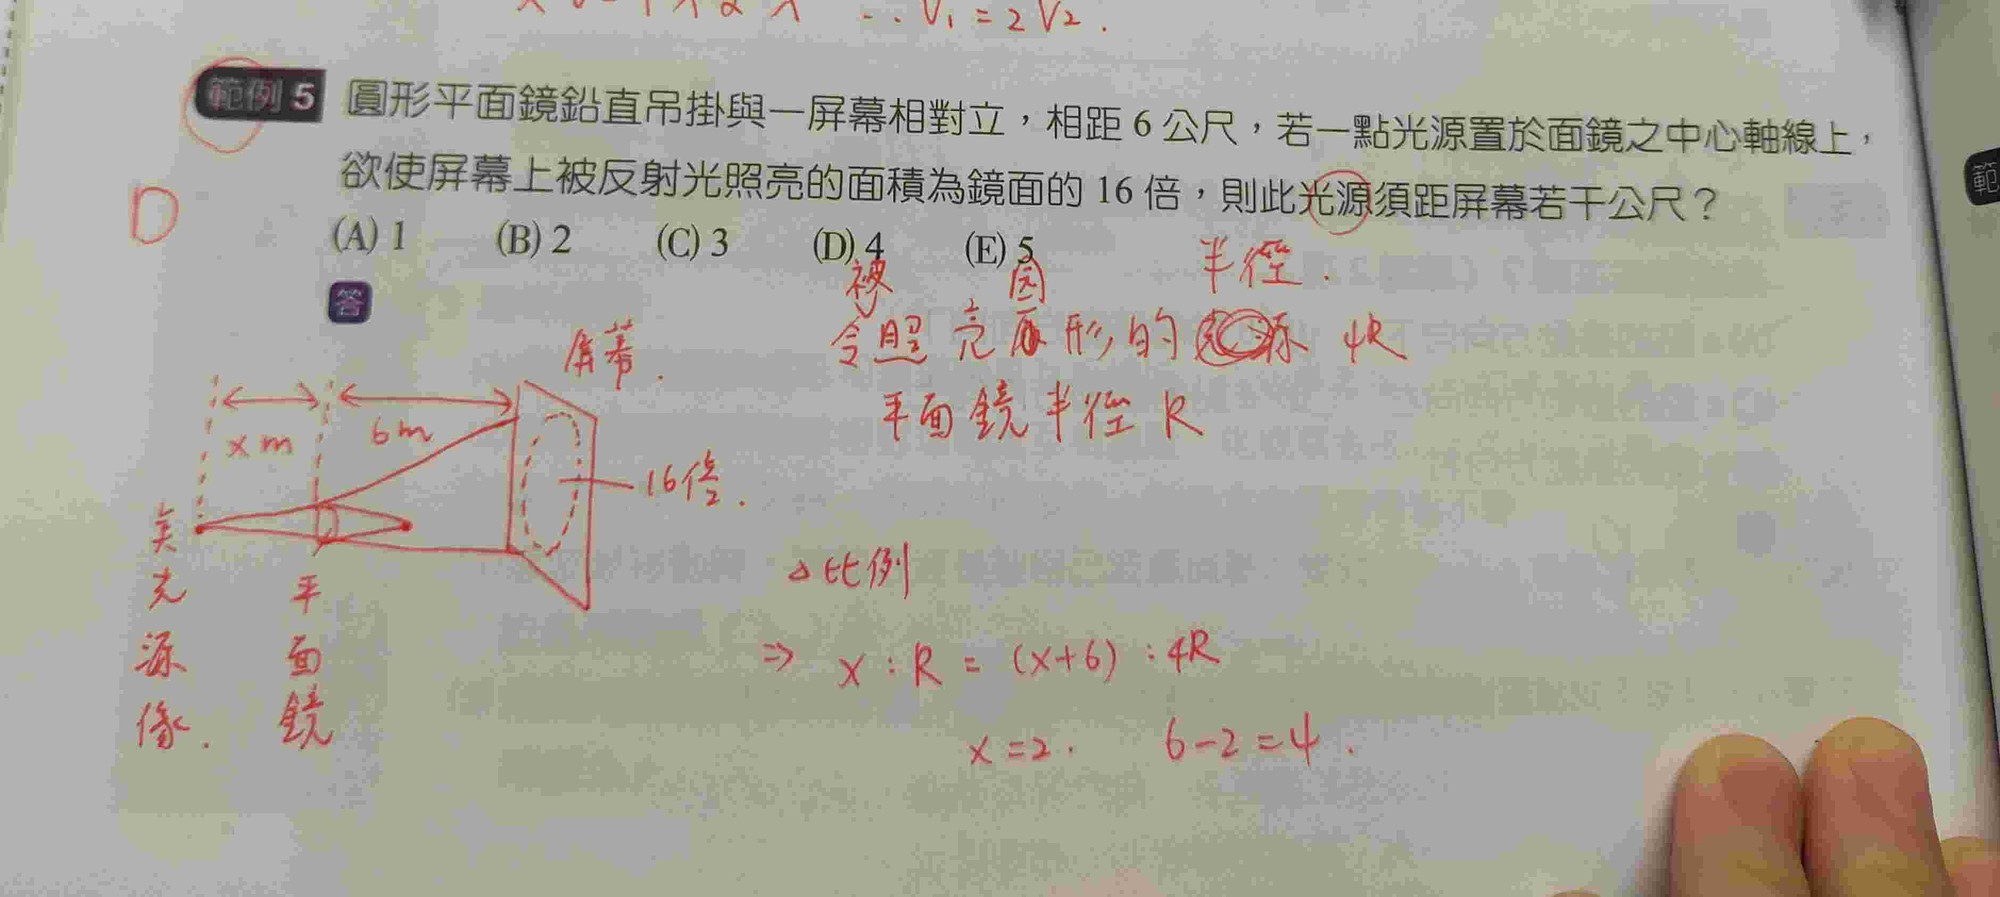 ∴ V₁ = 2 V₂ .
範例 5 圓形平面鏡鉛直吊掛與一屏幕相對立，相距 6 公尺，若一點光源置於面鏡之中心軸線上，
欲使屏幕上被反射光照亮的面積為鏡面的 16 倍，則此光源須距屏幕若干公尺？
D
(A) 1 (B) 2 (C) 3 (D) 4 (E) 5
答
半徑 .
被
令照亮圆形的 4R
平面鏡半徑 R
屏幕 .
x m 6 m
16倍 .
光源像 .
平面鏡
△比例
⇒ x : R = (x+6) : 4R
x = 2 . 6 - 2 = 4 .
範